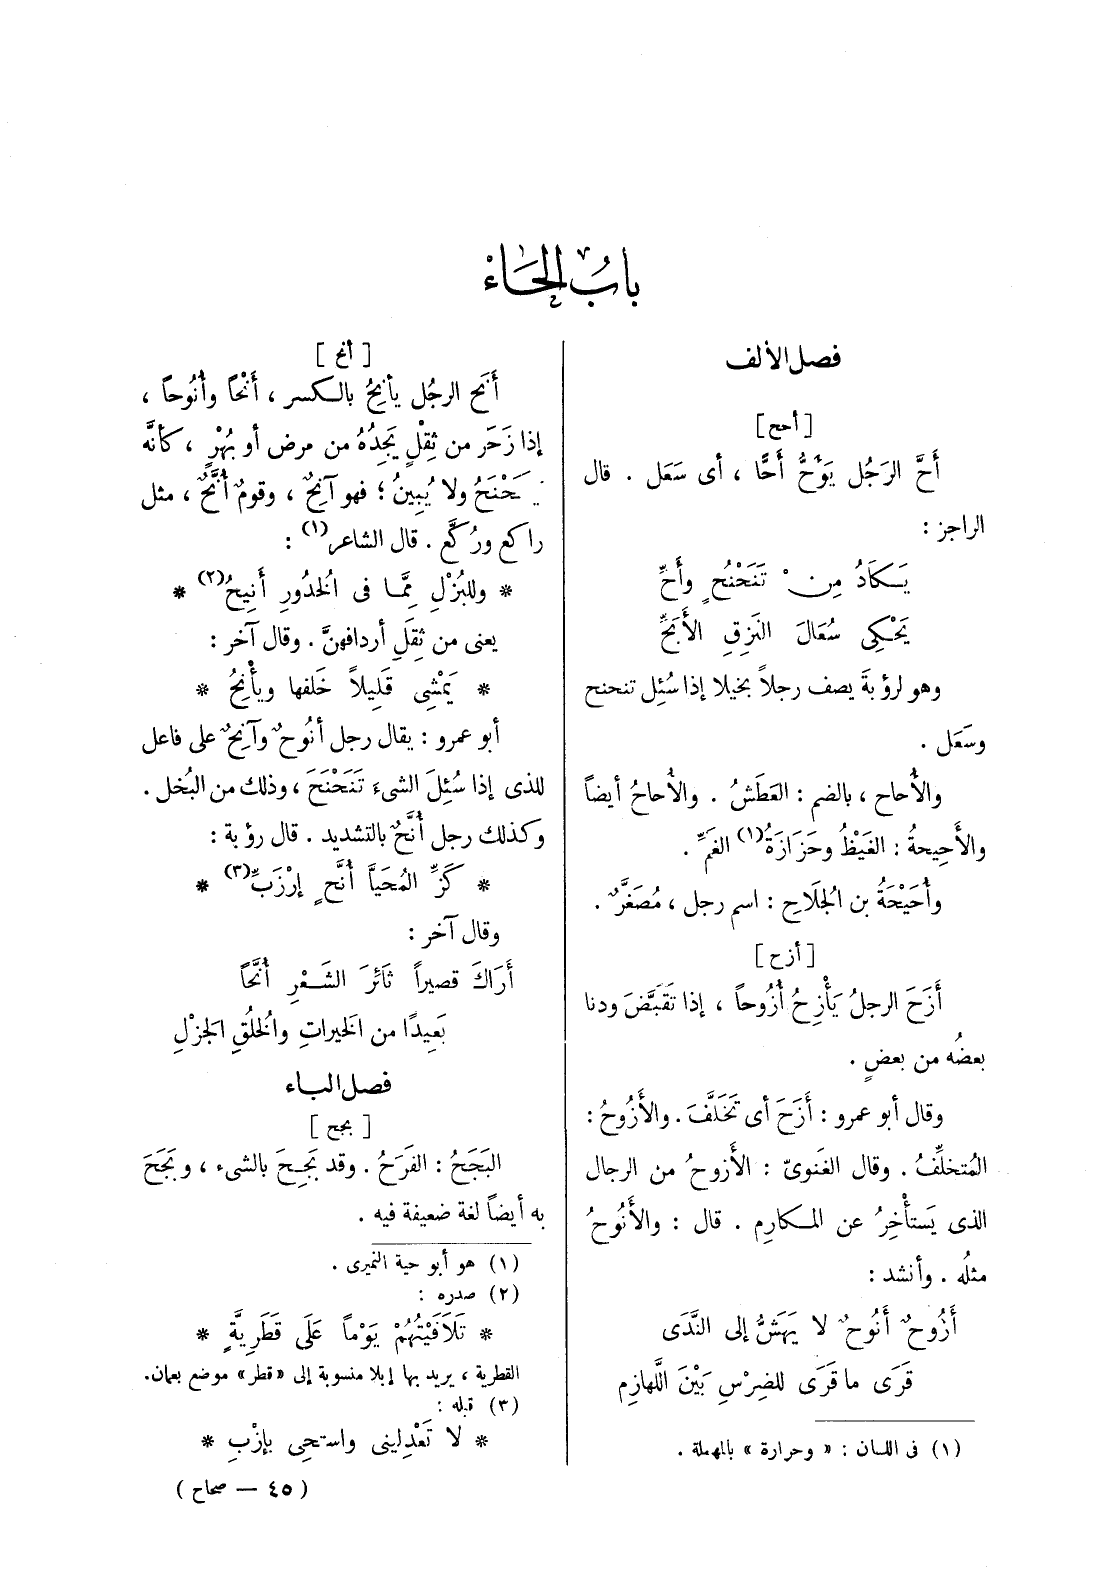 بابُ الحَاءْ
فصل الألف
[ أحح ]
أَحَّ الرَجُل يَؤُحُّ أَحًّا ، أى سَعَل . قال
الراجز :
يَكَادُ مِنْ تَنَحْنُحٍ وأَحِّ
يَحْكِى سُعَالَ النَزِقِ الأَبَحِّ
وهو لرؤبةَ يصف رجلاً بخيلا إذا سُئِل تنحنح
وسَعَل .
والأُحاح ، بالضم : العَطَشُ . والأُحاحُ أيضاً
والأَحِيحةُ : الغَيْظُ وحَزَازَةُ(١) الغمِّ .
وأُحَيْحَةُ بن الجُلَاحِ : اسم رجل ، مُصَغَّرٌ .
[ أزح ]
أَزَحَ الرجلُ يَأْزِحُ أُزُوحاً ، إذا تَقَبَّضَ ودنا
بعضُه من بعضٍ .
وقال أبو عمرو : أَزَحَ أى تَخَلَّفَ . والأَزُوحُ :
المُتخلِّفُ . وقال الغَنوىّ : الأَزوحُ من الرجال
الذى يَستأْخِرُ عن المكارِم . قال : والأَنُوحُ
مثلُه . وأنشد :
أَزُوحٌ أَنُوحٌ لا يَهَشُّ إلى النَّدَى
قَرَى ما قَرَى للضِرْسِ بَيْنَ اللَّهازِم
(١) فى اللسان : « وحرارة » بالمهملة .
[ أنح ]
أَنَح الرجُل يأنِحُ بالكسر ، أَنْحاً وأُنُوحاً ،
إذا زَحَر من ثِقْلٍ يَجِدُهُ من مرض أو بُهْرٍ ، كأنَّه
يَتَنَحْنَحُ ولا يُبِينُ ؛ فهو آنِحٌ ، وقومٌ أُنَّحٌ ، مثل
راكع ورُكَّع . قال الشاعر(١) :
* وللبُزْلِ مِمَّا فى الخُدُورِ أَنِيحُ(٢) *
يعنى من ثِقَلِ أردافهنَّ . وقال آخر :
* يَمْشِى قَلِيلاً خَلفها ويأْنِحُ *
أبو عمرو : يقال رجل أنُوحٌ وآنِحٌ على فاعل
للذى إذا سُئِلَ الشىءَ تَنَحْنَحَ ، وذلك من البُخل .
وكذلك رجل أُنَّحٌ بالتشديد . قال رؤبة :
* كَزِّ المُحَيَّا أُنَّحٍ إرْزَبِّ(٣) *
وقال آخر :
أَرَاكَ قصيراً ثَائرَ الشَعْرِ أُنَّحًا
بَعِيدًا من الخيراتِ والخُلُقِ الجزْلِ
فصل الباء
[ بجح ]
البَجَحُ : الفَرَحُ . وقد بَجِحَ بالشىء ، وبَجَحَ
به أيضاً لغة ضعيفة فيه .
(١) هو أبو حية النميرى .
(٢) صدره :
* تَلَافَيْتُهُمْ يَوْماً عَلَى قَطَرِيَّةٍ *
القطرية ، يريد بها إبلا منسوبة إلى «قطر» موضع بعمان.
(٣) قبله :
* لا تَعْدِلِينى واستحِى بإزْبِ *
( ٤٥ — صحاح )